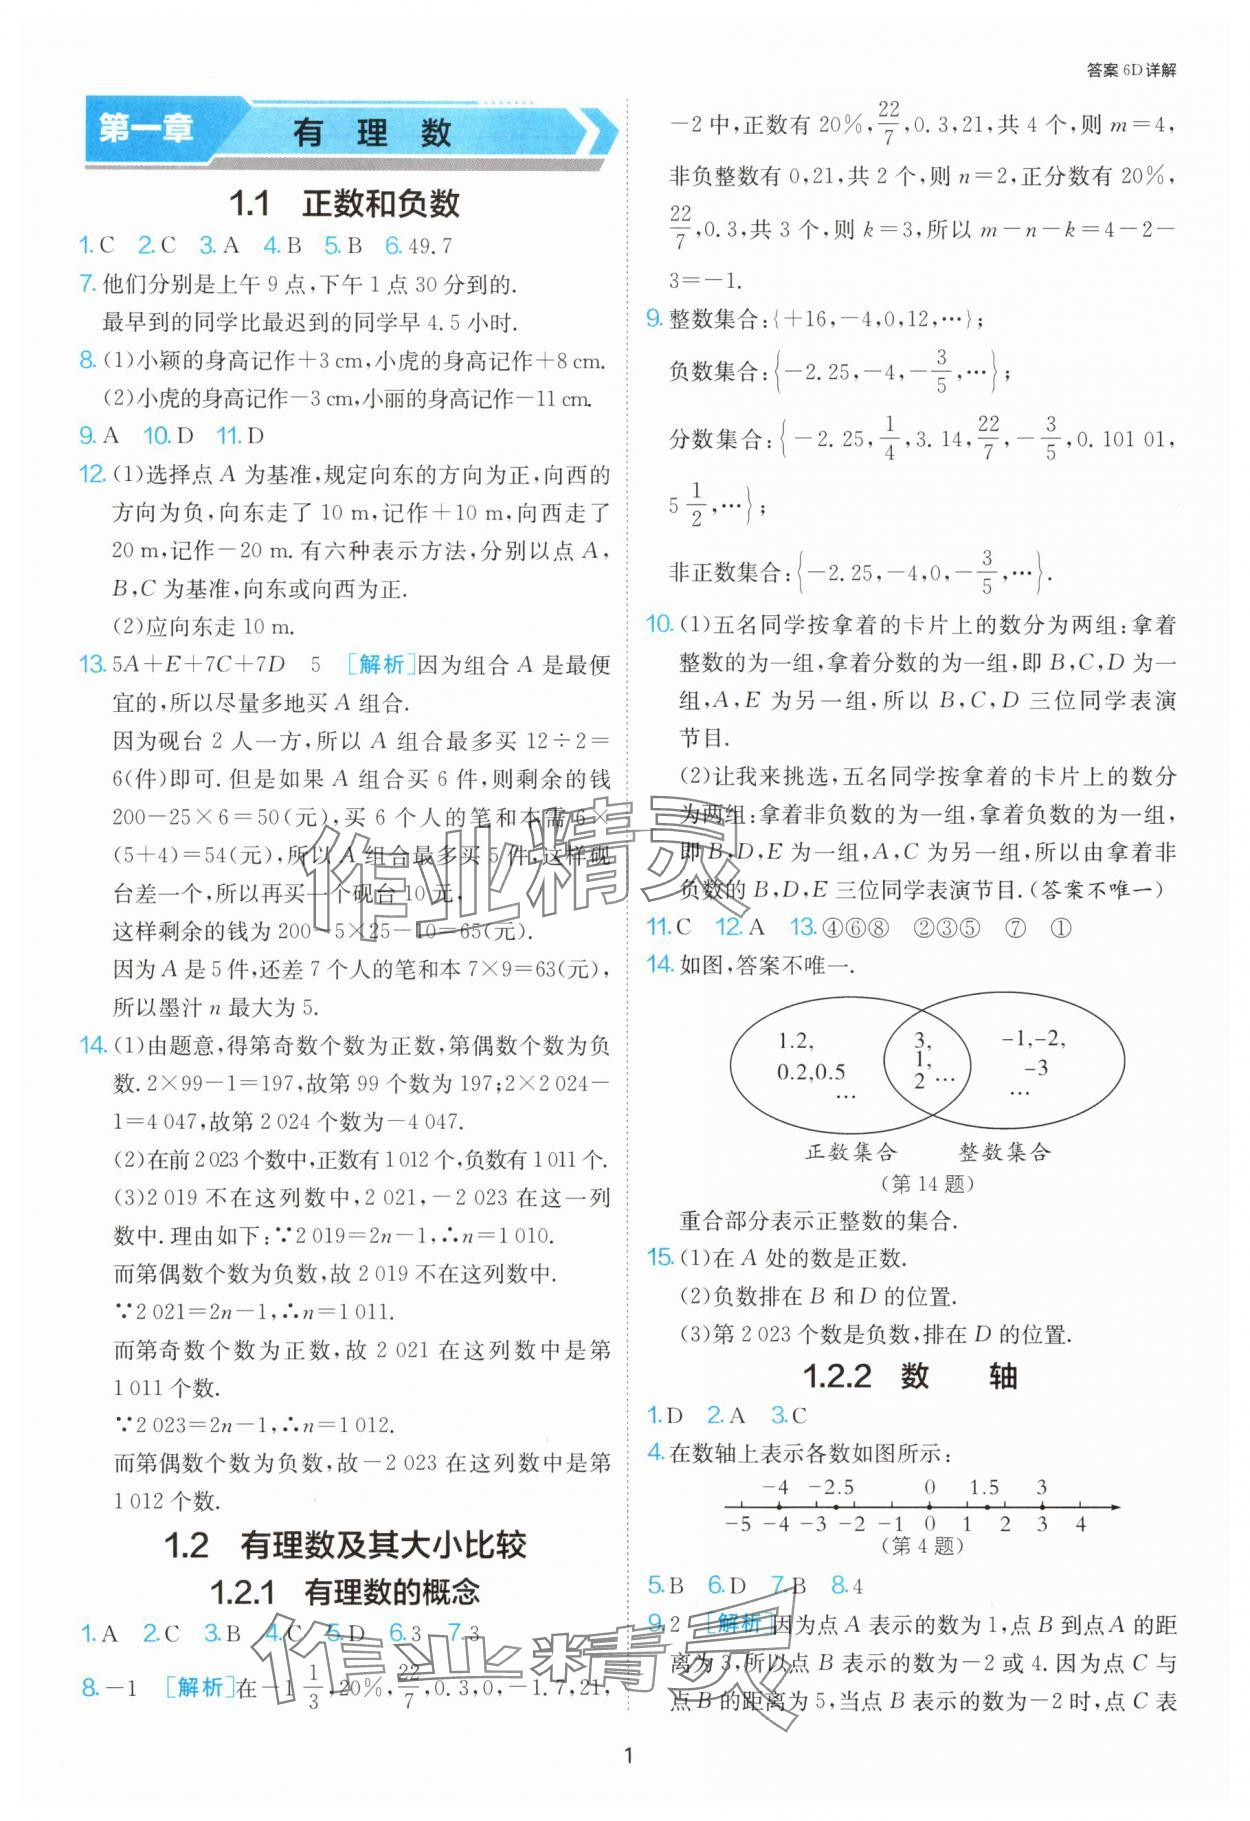 答案 6D详解
第一章 有理数
1.1 正数和负数
1. C 2. C 3. A 4. B 5. B 6. 49.7
7. 他们分别是上午 9 点,下午 1 点 30 分到的.
最早到的同学比最迟到的同学早 4.5 小时.
8. (1)小颖的身高记作+3 cm,小虎的身高记作+8 cm.
(2)小虎的身高记作-3 cm,小丽的身高记作-11 cm.
9. A 10. D 11. D
12. (1)选择点 A 为基准,规定向东的方向为正,向西的
方向为负,向东走了 10 m,记作+10 m,向西走了
20 m,记作-20 m. 有六种表示方法,分别以点 A,
B,C 为基准,向东或向西为正.
(2)应向东走 10 m.
13. 5A+E+7C+7D 5 [解析]因为组合 A 是最便
宜的,所以尽量多地买 A 组合.
因为砚台 2 人一方,所以 A 组合最多买 12÷2=
6(件)即可. 但是如果 A 组合买 6 件,则剩余的钱
200-25×6=50(元),买 6 个人的笔和本需 6×
(5+4)=54(元),所以 A 组合最多买 5 件,这样砚
台差一个,所以再买一个砚台 10 元,
这样剩余的钱为 200-5×25-10=65(元),
因为 A 是 5 件,还差 7 个人的笔和本 7×9=63(元),
所以墨汁 n 最大为 5.
14. (1)由题意,得第奇数个数为正数,第偶数个数为负
数. 2×99-1=197,故第 99 个数为 197;2×2 024-
1=4 047,故第 2 024 个数为-4 047.
(2)在前 2 023 个数中,正数有 1 012 个,负数有 1 011 个.
(3)2 019 不在这列数中,2 021,-2 023 在这一列
数中. 理由如下:∵2 019=2n-1,∴n=1 010.
而第偶数个数为负数,故 2 019 不在这列数中.
∵2 021=2n-1,∴n=1 011.
而第奇数个数为正数,故 2 021 在这列数中是第
1 011 个数.
∵2 023=2n-1,∴n=1 012.
而第偶数个数为负数,故-2 023 在这列数中是第
1 012 个数.
1.2 有理数及其大小比较
1.2.1 有理数的概念
1. A 2. C 3. B 4. C 5. D 6. 3 7. 3
8. -1 [解析]在-1 1/3,20%,22/7,0.3,0,-1.7,21,
-2 中,正数有 20%,22/7,0.3,21,共 4 个,则 m=4,
非负整数有 0,21,共 2 个,则 n=2,正分数有 20%,
22/7,0.3,共 3 个,则 k=3,所以 m-n-k=4-2-
3=-1.
9. 整数集合:{+16,-4,0,12,…};
负数集合:{-2.25,-4,-3/5,…};
分数集合:{-2.25,1/4,3.14,22/7,-3/5,0.101 01,
5 1/2,…};
非正数集合:{-2.25,-4,0,-3/5,…}.
10. (1)五名同学按拿着的卡片上的数分为两组:拿着
整数的为一组,拿着分数的为一组,即 B,C,D 为一
组,A,E 为另一组,所以 B,C,D 三位同学表演
节目.
(2)让我来挑选,五名同学按拿着的卡片上的数分
为两组:拿着非负数的为一组,拿着负数的为一组,
即 B,D,E 为一组,A,C 为另一组,所以由拿着非
负数的 B,D,E 三位同学表演节目.(答案不唯一)
11. C 12. A 13. ④⑥⑧ ②③⑤ ⑦ ①
14. 如图,答案不唯一.
1.2, 3, -1,-2,
0.2,0.5 1, -3
… 2 … …
正数集合 整数集合
(第 14 题)
重合部分表示正整数的集合.
15. (1)在 A 处的数是正数.
(2)负数排在 B 和 D 的位置.
(3)第 2 023 个数是负数,排在 D 的位置.
1.2.2 数 轴
1. D 2. A 3. C
4. 在数轴上表示各数如图所示:
-4 -2.5 0 1.5 3
-5 -4 -3 -2 -1 0 1 2 3 4
(第 4 题)
5. B 6. D 7. B 8. 4
9. 2 [解析]因为点 A 表示的数为 1,点 B 到点A 的距
离为 3,所以点 B 表示的数为-2 或 4. 因为点 C 与
点 B 的距离为 5,当点 B 表示的数为-2 时,点 C 表
1
作业精灵
作业精灵